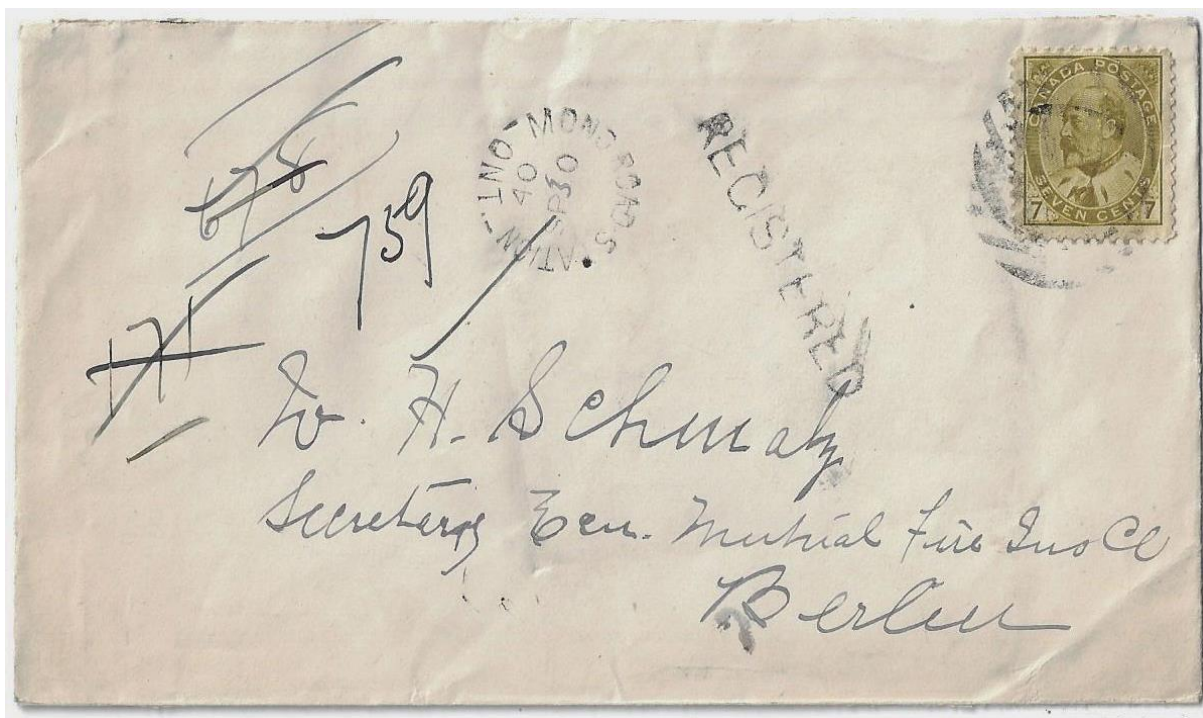 CANADA POSTAGE
SEVEN CENTS
7 7
MONO ROAD STATION - ONT -
40
SP 30
REGISTERED
678
759
171
W. H. Schmalz
Secretary Ecn. Mutual Fire Ins Co
Berlin